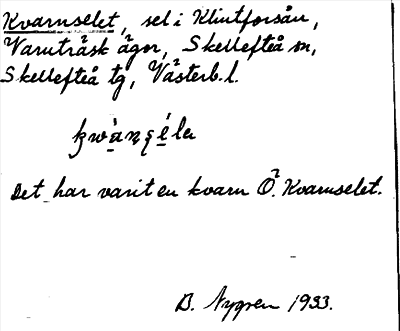 Kvarnselet, sel i Klintforsån,
Varuträsk ägor, Skellefteå sn,
Skellefteå tg, Västerb. l.
kwà̱nsé̱la
Det har varit en kvarn Ö. Kvarnselet.
B. Nygren 1933.